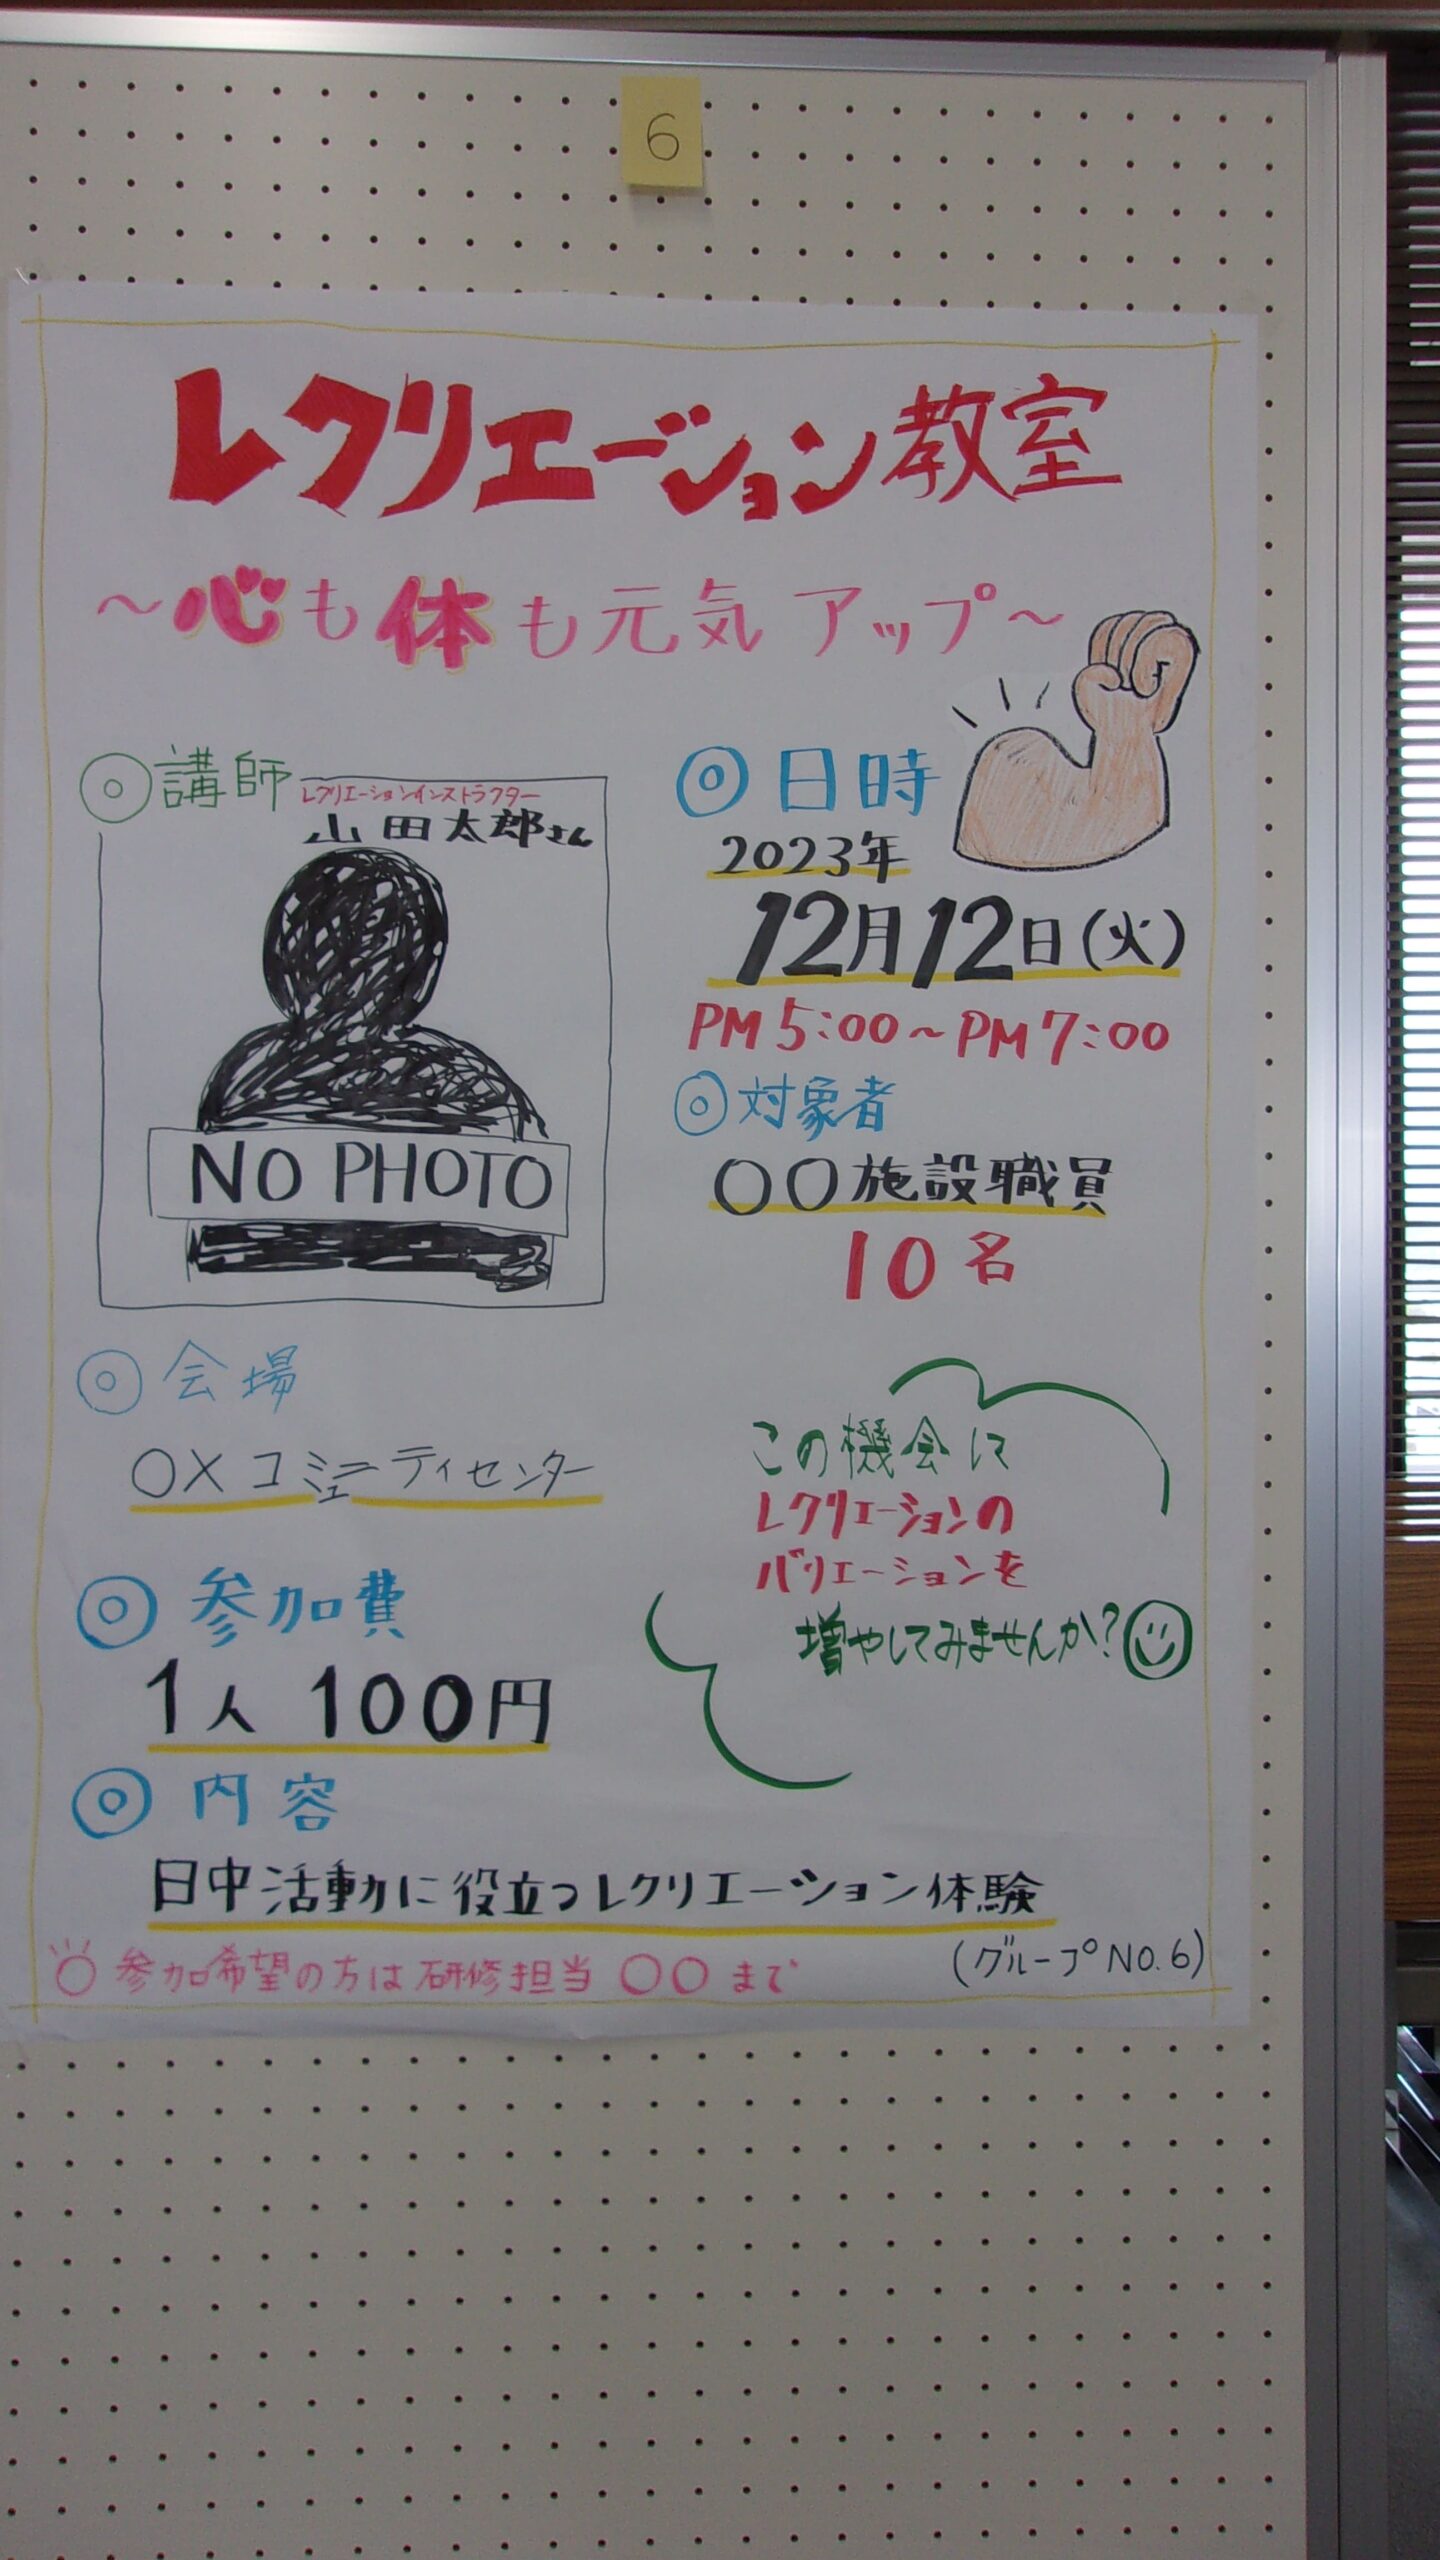 6
レクリエーション教室
～心も体も元気アップ～
◎講師
レクリエーションインストラクター
山田太郎さん
NO PHOTO
◎日時
2023年
12月12日(火)
PM5:00～PM7:00
◎対象者
○○施設職員
10名
◎会場
○×コミュニティセンター
◎参加費
1人 100円
この機会に
レクリエーションの
バリエーションを
増やしてみませんか?
◎内容
日中活動に役立つレクリエーション体験
○参加希望の方は研修担当 ○○まで
(グループNO.6)